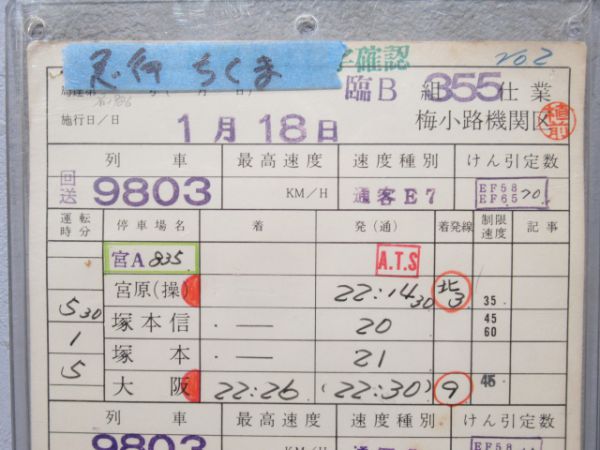 急行 ちくま
確認
No 2
臨B 組 655 仕業
施行日/日 1月18日 梅小路機関区
列車 最高速度 速度種別 けん引定数
回送 9803 KM/H 通客E7 EF58 EF65 70
運転時分 停車場名 着 発(通) 着発線 制限速度 記事
宮A 835 A.T.S
宮原(操) 22:14 30 北3 35
5 30 塚本信 . — 20 45 60
1 塚本 . — 21
5 大阪 22:26 (22:30) 9 45
列車 最高速度 速度種別 けん引定数
9803 KM/H EF58